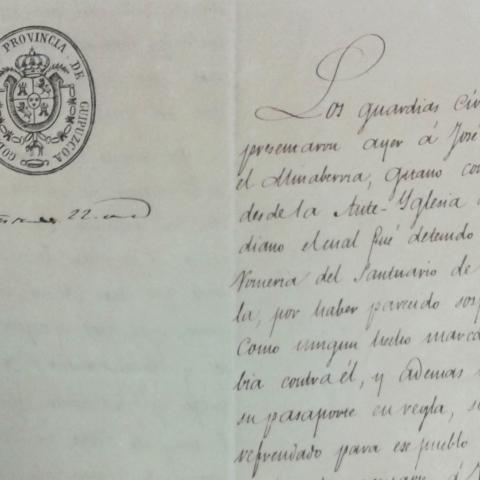 PROVINCIA DE GUIPUZCOA
GO
22
Los guardias Civ
presentaron ayer á José
el Minaberria, gitano con
desde la Ante-Yglesia
diano el cual fué detenido
del Santuario de
la, por haber parecido sosp
Como ningun hecho marca
bia contra él, y además
su pasaporte en regla, s
refrendado para ese pueblo